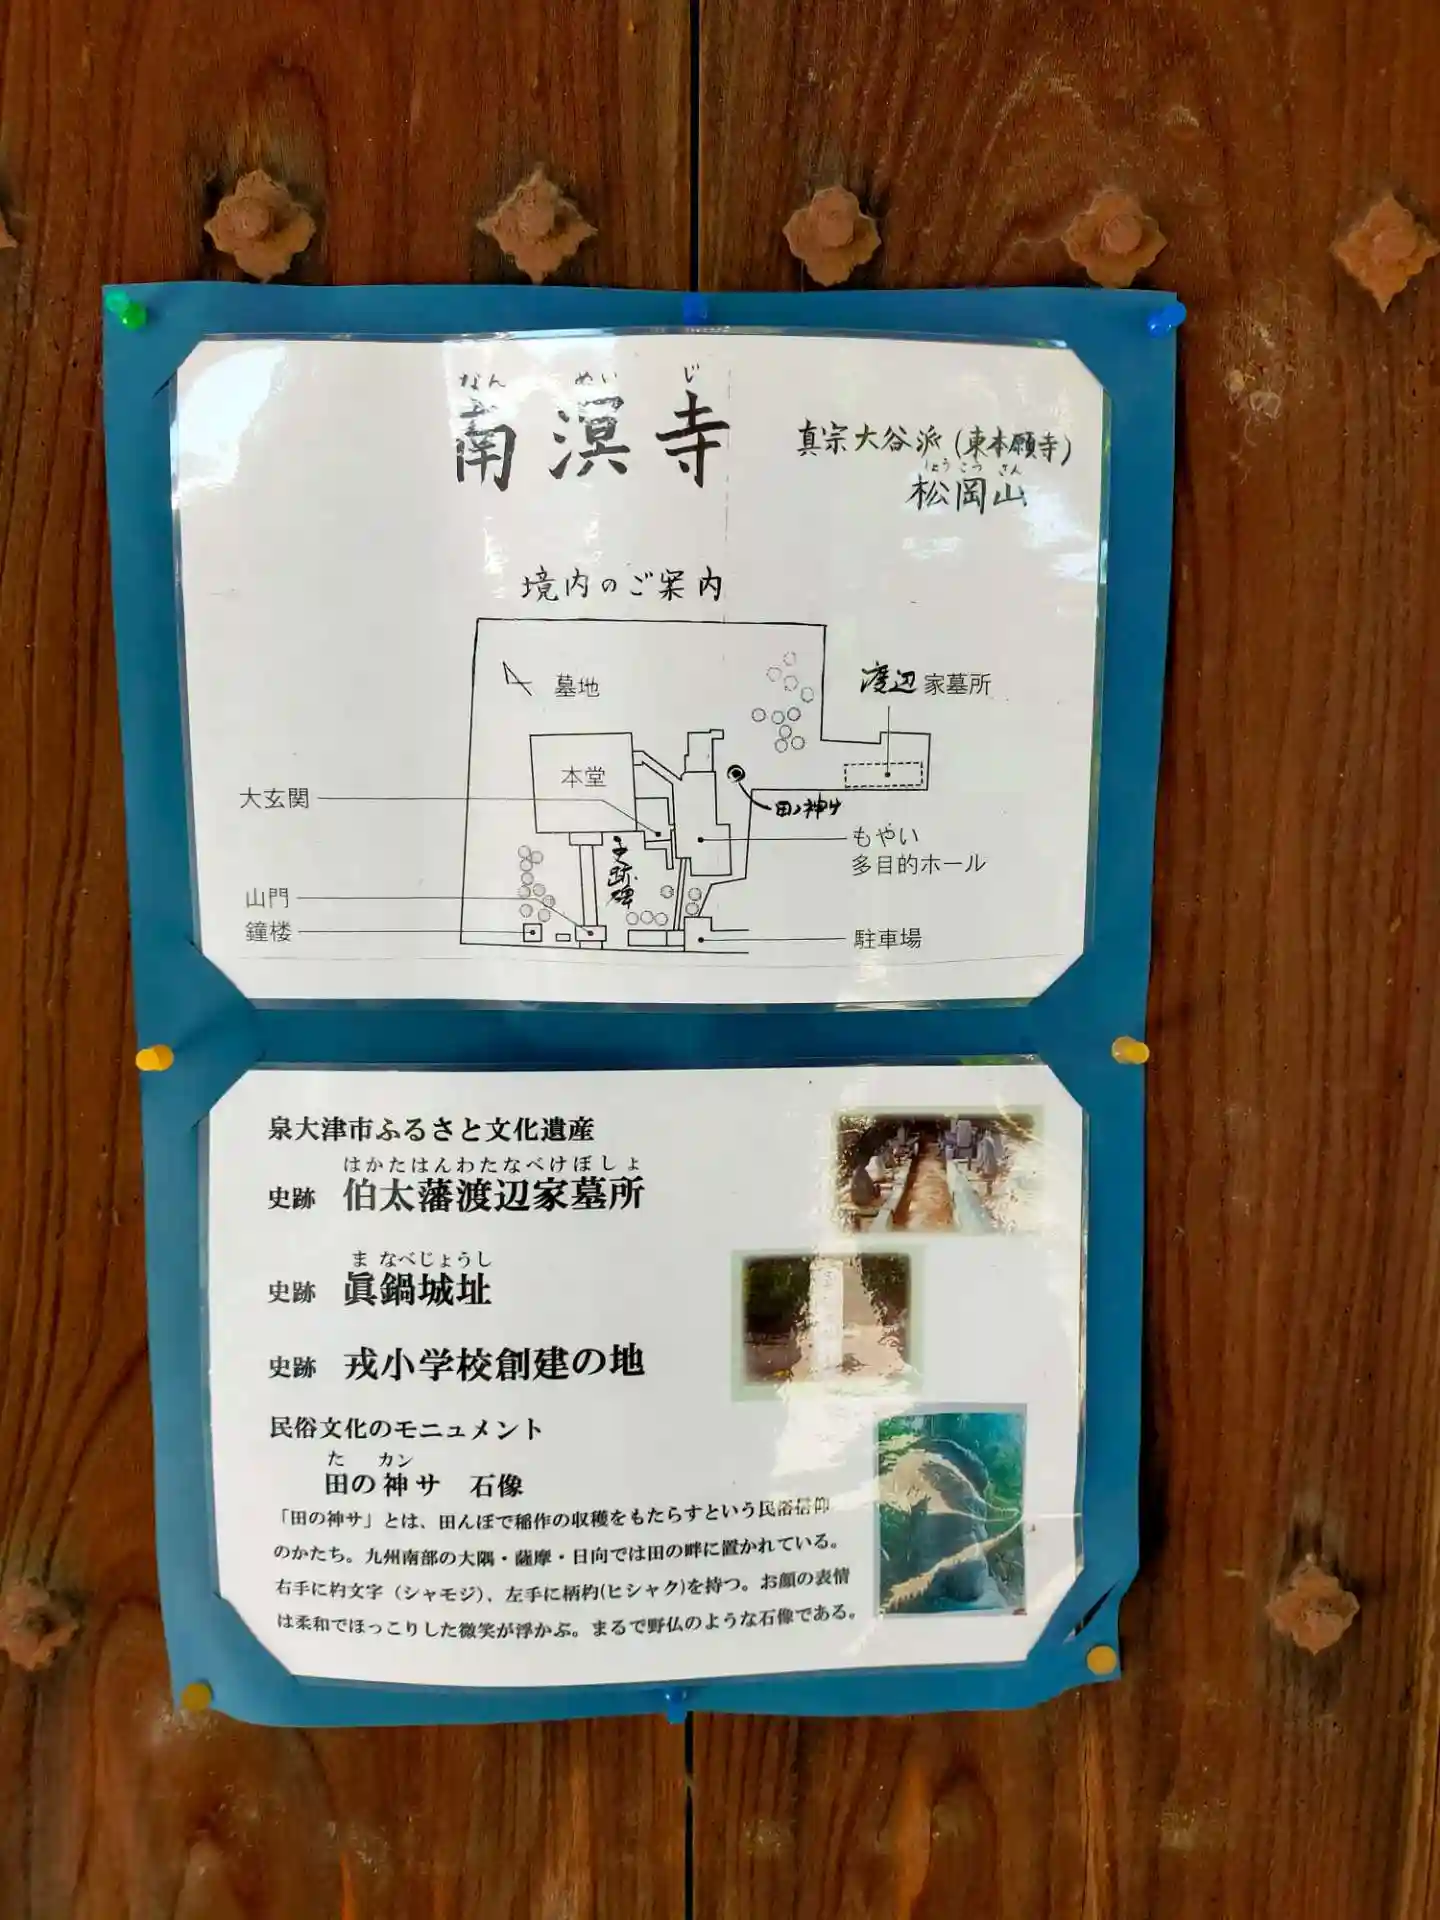 なんめいじ
南溟寺
真宗大谷派(東本願寺)
しょうこうさん
松岡山
境内のご案内
墓地
渡辺家墓所
本堂
大玄関
田ノ神サ
もやい
多目的ホール
史跡碑
山門
鐘楼
駐車場
泉大津市ふるさと文化遺産
はかたはんわたなべけぼしょ
史跡 伯太藩渡辺家墓所
まなべじょうし
史跡 眞鍋城址
史跡 戎小学校創建の地
民俗文化のモニュメント
た カン
田の神サ 石像
「田の神サ」とは、田んぼで稲作の収穫をもたらすという民俗信仰
のかたち。九州南部の大隅・薩摩・日向では田の畔に置かれている。
右手に杓文字（シャモジ）、左手に柄杓(ヒシャク)を持つ。お顔の表情
は柔和でほっこりした微笑が浮かぶ。まるで野仏のような石像である。